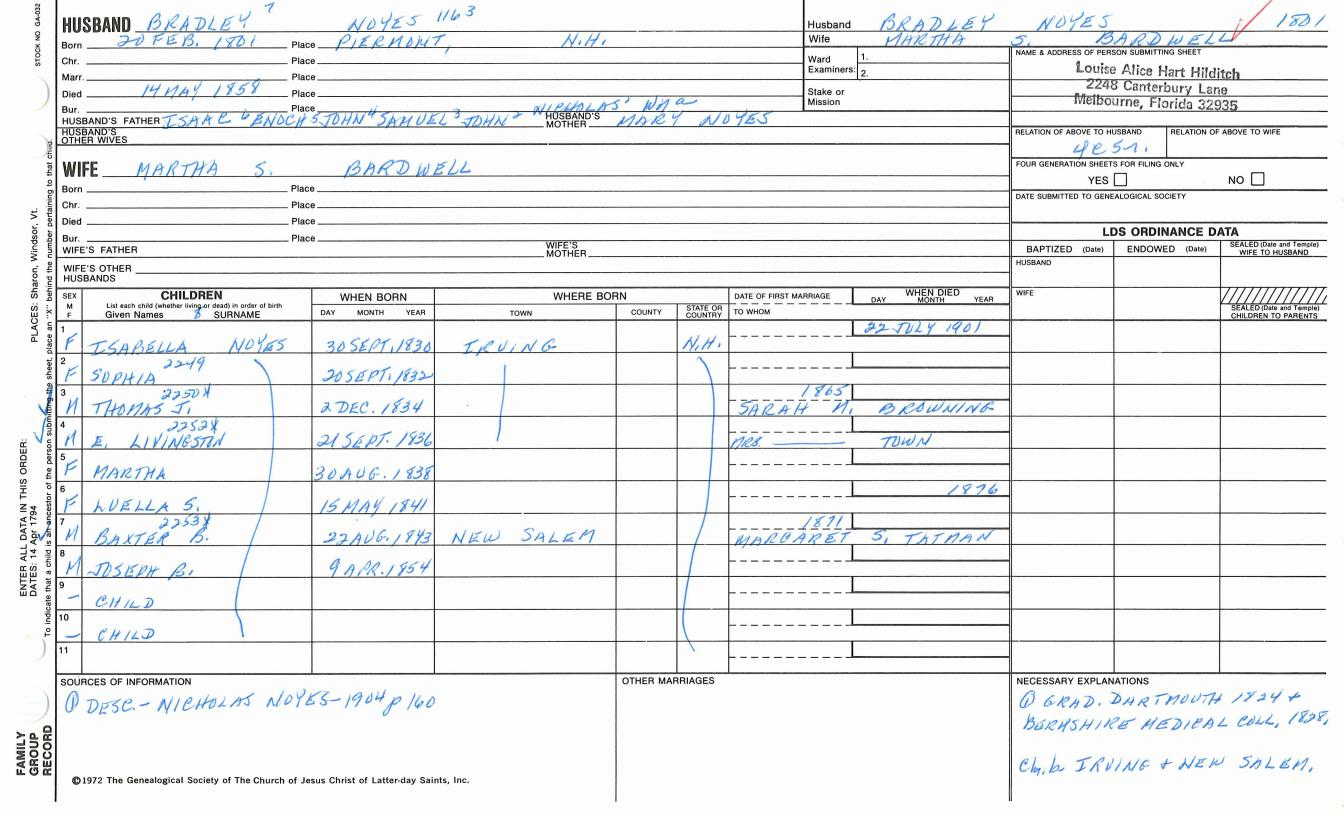 STOCK NO. GA-032
HUSBAND BRADLEY 7 NOYES 1163
Born 20 FEB. 1801 Place PIERMONT, N.H.
Chr. Place
Marr. Place
Died 14 MAY 1858 Place
Bur. Place
HUSBAND'S FATHER ISAAC 6 ENOCH 5 JOHN 4 SAMUEL 3 JOHN 2 NICHOLAS' HUSBAND'S MOTHER MARY NOYES
HUSBAND'S OTHER WIVES
Husband BRADLEY NOYES 1801
Wife MARTHA S. BARDWELL
Ward Examiners: 1.
2.
Stake or Mission
NAME & ADDRESS OF PERSON SUBMITTING SHEET
Louise Alice Hart Hilditch
2248 Canterbury Lane
Melbourne, Florida 32935
RELATION OF ABOVE TO HUSBAND RELATION OF ABOVE TO WIFE
4c5r.
FOUR GENERATION SHEETS FOR FILING ONLY
YES NO
DATE SUBMITTED TO GENEALOGICAL SOCIETY
WIFE MARTHA S. BARDWELL
Born Place
Chr. Place
Died Place
Bur. Place
WIFE'S FATHER WIFE'S MOTHER
WIFE'S OTHER HUSBANDS
LDS ORDINANCE DATA
BAPTIZED (Date) ENDOWED (Date) SEALED (Date and Temple) WIFE TO HUSBAND
HUSBAND
WIFE
SEALED (Date and Temple) CHILDREN TO PARENTS
SEX M F CHILDREN WHEN BORN WHERE BORN DATE OF FIRST MARRIAGE WHEN DIED
List each child (whether living or dead) in order of birth
Given Names 8 SURNAME DAY MONTH YEAR TOWN COUNTY STATE OR COUNTRY TO WHOM DAY MONTH YEAR
1 F ISABELLA NOYES 30 SEPT. 1830 IRVING N.H. 22 JULY 1901
2 F SOPHIA 2249 20 SEPT. 1832
3 M THOMAS J. 2250X 2 DEC. 1834 1865 SARAH M. BROWNING
4 M E. LIVINGSTIN 2252X 21 SEPT. 1836 MRS. TOWN
5 F MARTHA 30 AUG. 1838
6 F LUELLA S. 15 MAY 1841 1876
7 M BAXTER B. 2253X 22 AUG. 1843 NEW SALEM 1871 MARGARET S. TATMAN
8 M JOSEPH B. 9 APR. 1854
9 - CHILD
10 - CHILD
11
SOURCES OF INFORMATION
① DESC.- NICHOLAS NOYES-1904 p 160
OTHER MARRIAGES
NECESSARY EXPLANATIONS
① GRAD. DARTMOUTH 1824 +
BERKSHIRE MEDICAL COLL, 1828,
Ch. b IRVING + NEW SALEM.
©1972 The Genealogical Society of The Church of Jesus Christ of Latter-day Saints, Inc.
FAMILY GROUP RECORD
ENTER ALL DATA IN THIS ORDER:
DATES: 14 Apr 1794
PLACES: Sharon, Windsor, Vt.
To indicate that a child is an ancestor of the person submitting the sheet, place an "X" behind the number pertaining to that child.